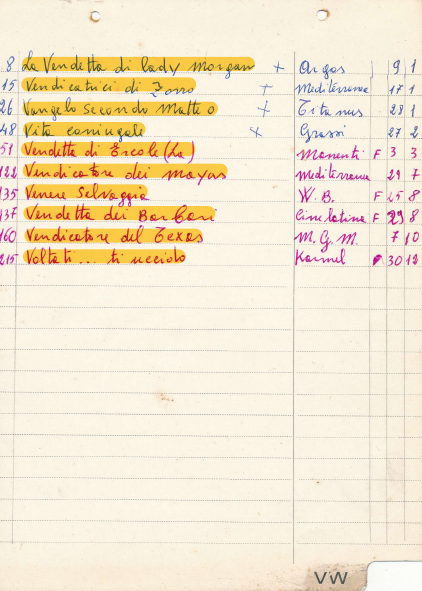 8 La Vendetta di lady Morgan + Argos 9 1
15 Vendicatrici di Zorro + Mediterranea 17 1
26 Vangelo secondo Matteo + Titanus 28 1
48 Vita coniugale × Grassi 27 2
51 Vendetta di Ercole (La) Manenti F 3 3
122 Vendicatore dei Mayas Mediterranea 29 7
135 Venere Selvaggia W. B. F 25 8
137 Vendetta dei Barbari Cinelatina F 29 8
160 Vendicatore del Texas M. G. M. 7 10
215 Voltati... ti uccido Karmel 30 12
VW